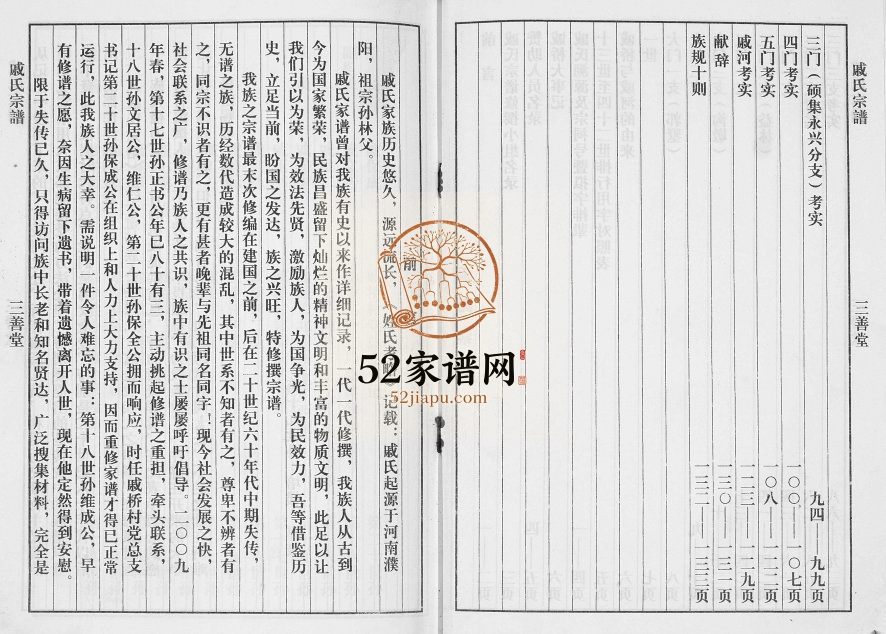 戚氏宗譜
三善堂
三门（硕集永兴分支）考实 九四——九九页
四门考实 一〇〇——一〇七页
五门考实 一〇八——一二二页
戚河考实 一二三——一二九页
献辞 一三〇——一三一页
族规十则 一三二——一三三页
前
52家谱网
52jiapu.com
戚氏家族历史悠久，源远流长，《姓氏考略》记载：戚氏起源于河南濮
阳，祖宗孙林父。
戚氏家谱曾对我族有史以来作详细记录，一代一代修撰，我族人从古到
今为国家繁荣，民族昌盛留下灿烂的精神文明和丰富的物质文明，此足以让
我们引以为荣，为效法先贤，激励族人，为国争光，为民效力，吾等借鉴历
史，立足当前，盼国之发达，族之兴旺，特修撰宗谱。
我族之宗谱最末次修编在建国之前，后在二十世纪六十年代中期失传，
无谱之族，历经数代造成较大的混乱，其中世系不知者有之，尊卑不辨者有
之，同宗不识者有之，更有甚者晚辈与先祖同名同字！现今社会发展之快，
社会联系之广，修谱乃族人之共识，族中有识之士屡屡呼吁倡导。二〇〇九
年春，第十七世孙正书公年已八十有三，主动挑起修谱之重担，牵头联系，
十八世孙文居公，维仁公，第二十世孙保全公拥而响应，时任戚桥村党总支
书记第二十世孙保成公在组织上和人力上大力支持，因而重修家谱才得已正常
运行，此我族人之大幸。需说明一件令人难忘的事：第十八世孙维成公，早
有修谱之愿，奈因生病留下遗书，带着遗憾离开人世，现在他定然得到安慰。
限于失传已久，只得访问族中长老和知名贤达，广泛搜集材料，完全是
戚氏宗譜
三善堂